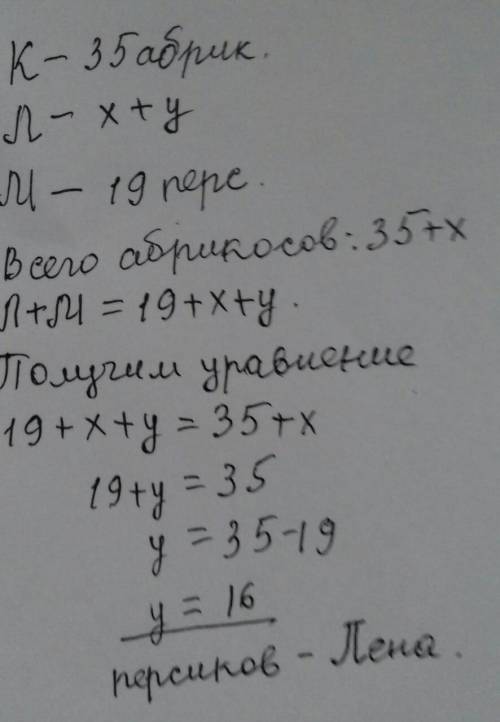 К – 35 абрик.
Л – x + y
М – 19 перс.
Всего абрикосов: 35+x
Л+М = 19+x+y.
Получим уравнение
19 + x + y = 35 + x
19+y = 35
y = 35-19
y = 16
персиков - Лена.